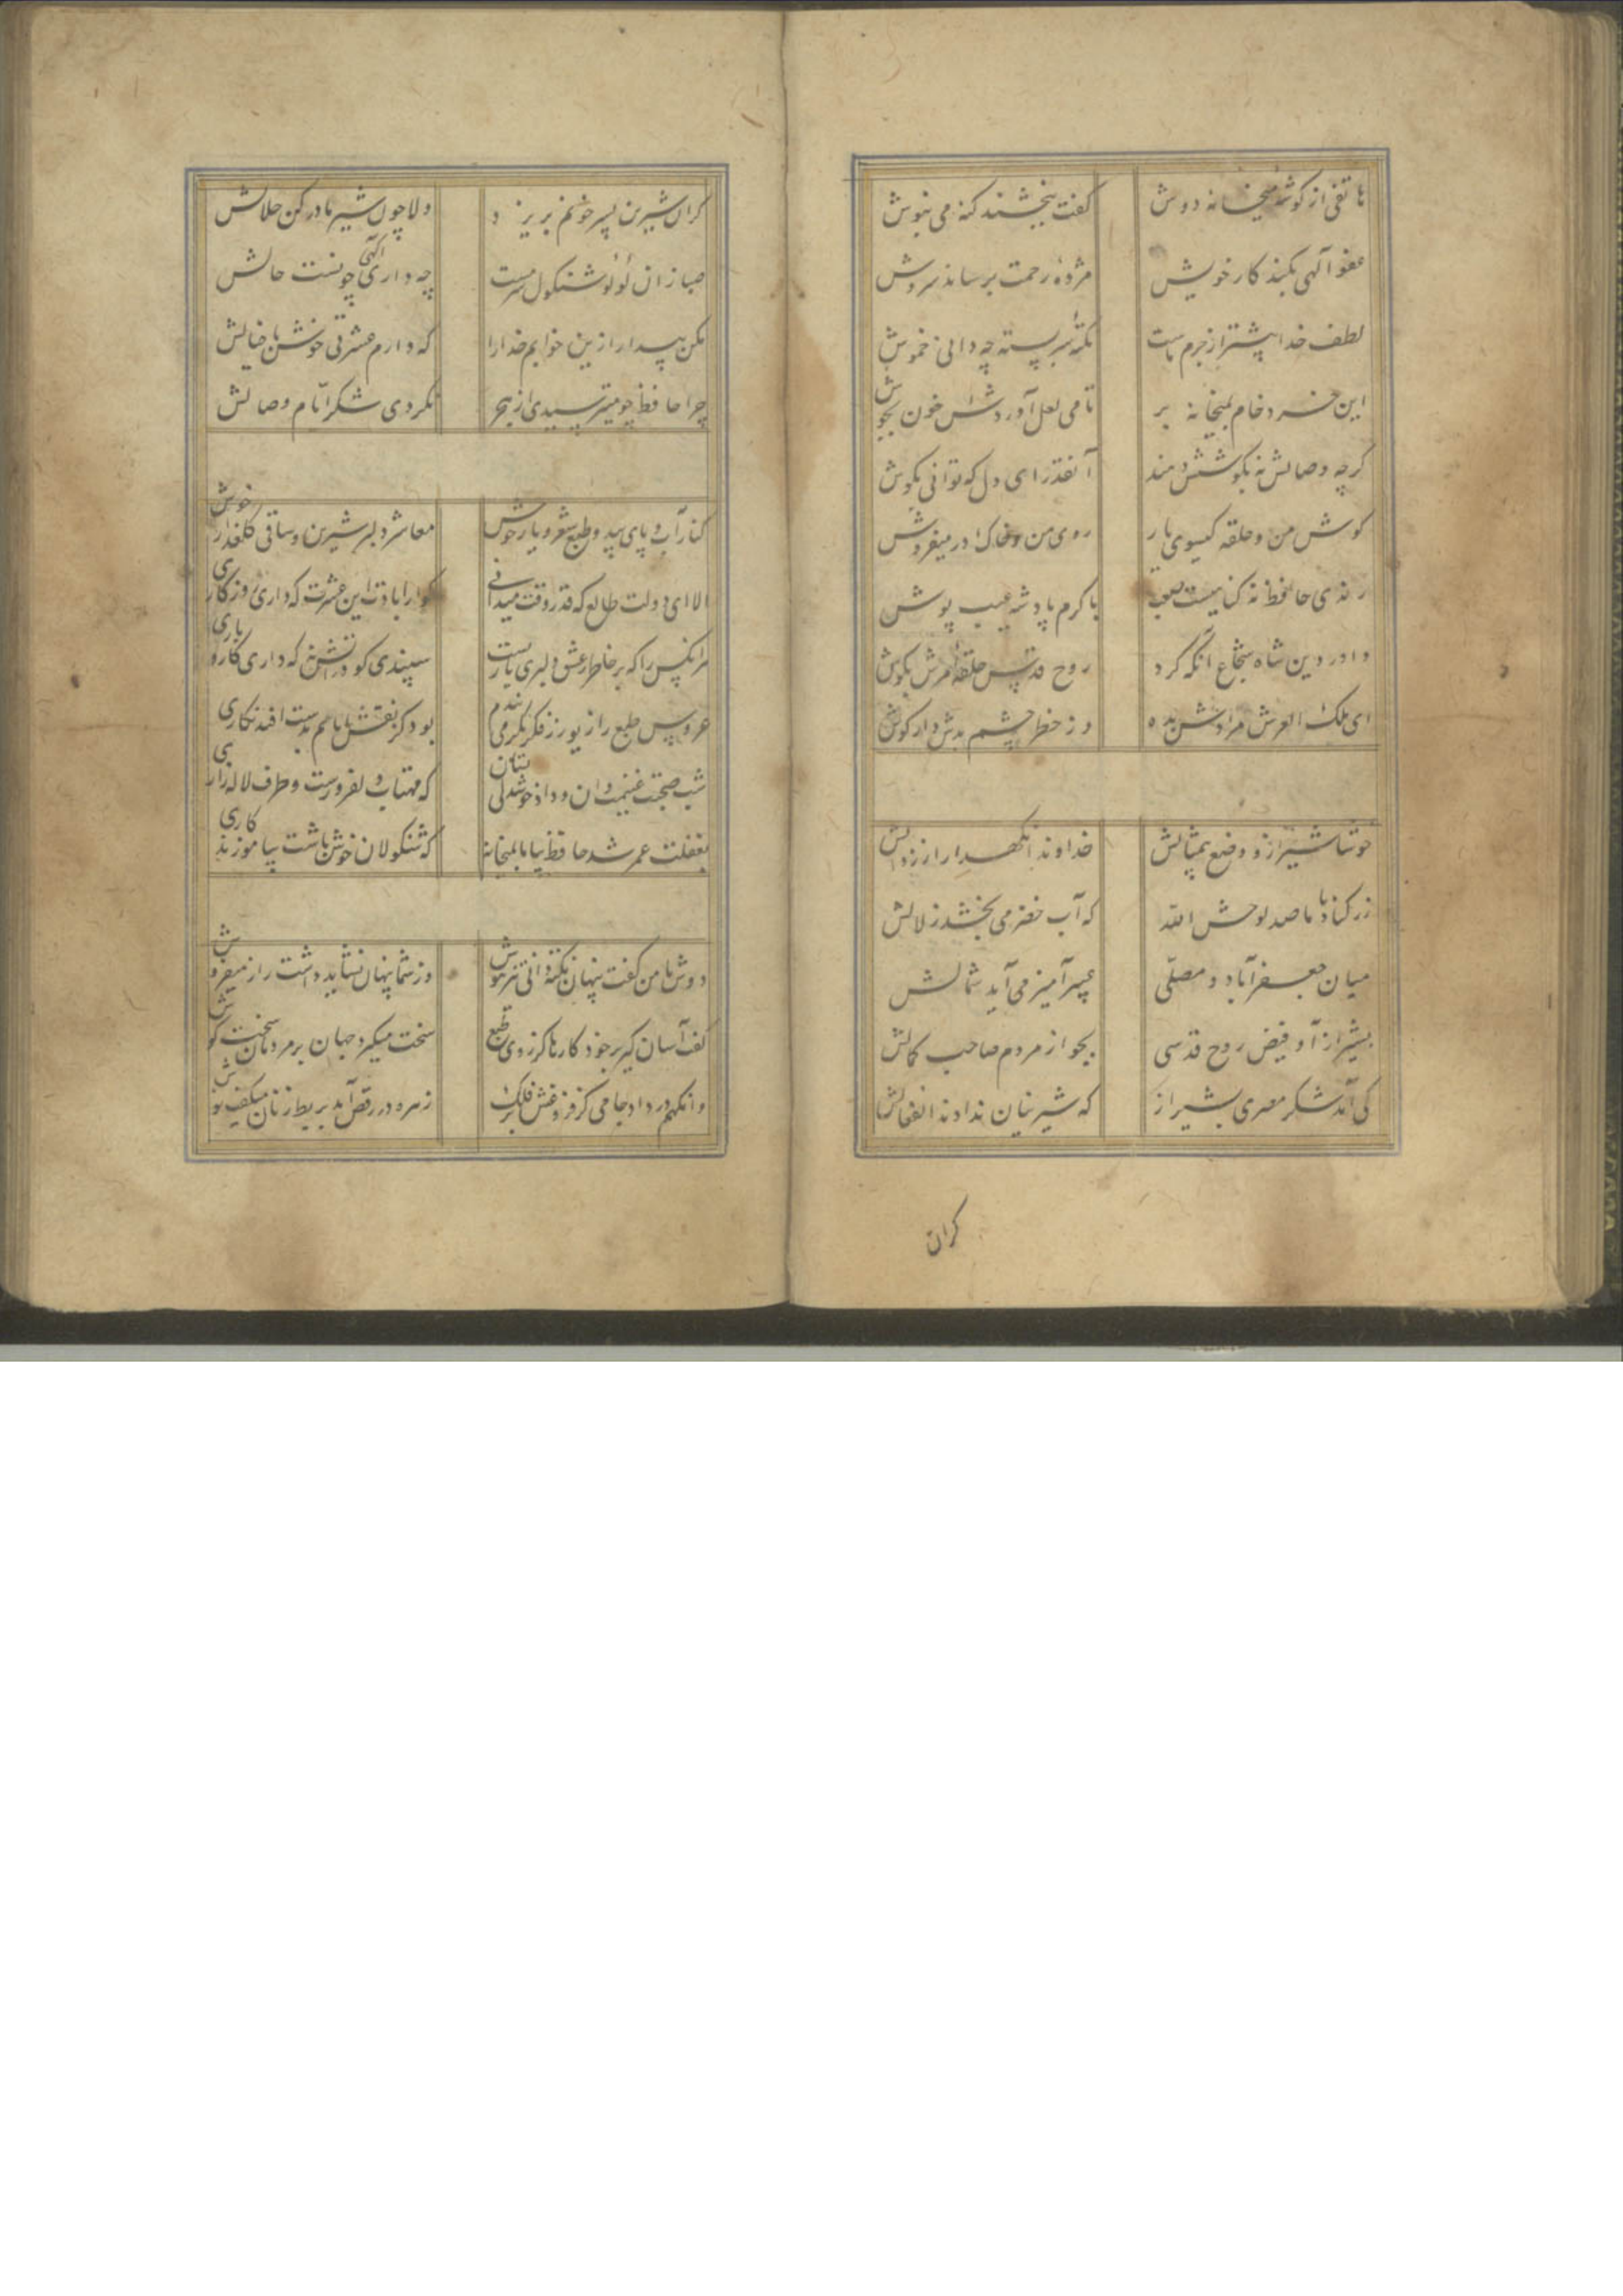 هاتفی از کوشه میخانه دوش کفت ببخشند کنه می بنوش
عفو الهی بکند کار خویش مژده رحمت برساند سروش
لطف خدا بیشتر از جرم ماست نکته سر بسته چه دانی خموش
این خرد خام بمیخانه بر تا می لعل آوردش خون بجوش
کرچه وصالش نه بکوشش دهند آنقدر ای دل که توانی بکوش
کوش من و حلقه کیسوی یار روی من و خاک در میفروش
رندی حافظ نه کناهیست صعب با کرم پادشه عیب پوش
داور دین شاه شجاع آنکه کرد روح قدس حلقه امرش بکوش
ای ملک العرش مرادش بده وز خطر چشم بدش دار کوش
خوشا شیراز و وضع بیمثالش خداوندا نکهدار از زوالش
ز رکناباد ما صد لوحش الله که آب خضر می بخشد زلالش
میان جعفرآباد و مصلی عبیر آمیز می آید شمالش
بشیراز آ و فیض روح قدسی بجو از مردم صاحب کمالش
کی آمد شکر مصری بشیراز که شیرینان ندادند انفعالش
کران
کر ان شیرین پسر خونم بریزد دلا چون شیر مادر کن حلالش
صبا زان لولو شنکول سرمست چه داری آکهی چونست حالش
مکن بیدار ازین خوابم خدارا که دارم عشرتی خوش با خیالش
چرا حافظ چو میترسیدی از هجر نکردی شکر ایام وصالش
کنار آب و پای بید و طبع شعر و یار خوش معاشر دلبر شیرین و ساقی کلعذار خوش
الا ای دولت طالع که قدر وقت میدانی کوارا بادت این عشرت که داری روزکاری
هر انکس را که بر خاطر عشق دلبری باریست سپندی کو در آتش نه که داری کار و باری
عروس طبع را زیور ز فکر بکر می بندم بود کز نقش ایامم بدست افتد نکاری
شب صحبت غنیمت دان و داد خوشدلی بستان که مهتاب دلفروزست و طرف لاله زاری
بغفلت عمر شد حافظ بیا با ما بمیخانه که شنکولان خوش باشت بیاموزند کاری
دوش با من کفت پنهان نکته دانی تیز هوش وز شما پنهان نشاید داشت راز میفروش
کفت آسان کیر بر خود کارها کز روی طبع سخت میکیرد جهان بر مردمان سخت کوش
وانکهم در داد جامی کز فروغش بر فلک زهره در رقص آمد بربط زنان میکفت نوش